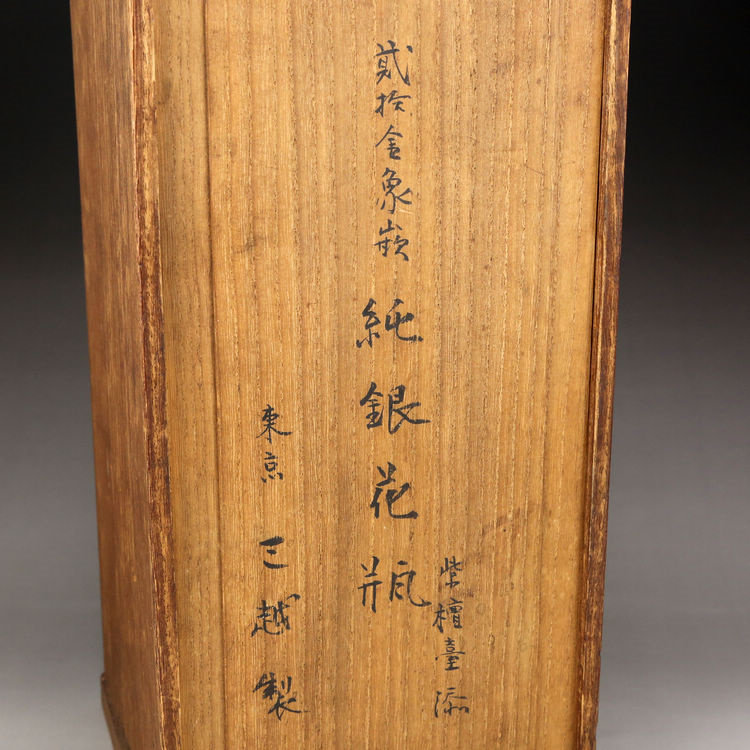 紫檀臺添
貳拾金象嵌 純銀花瓶
東京 三越製